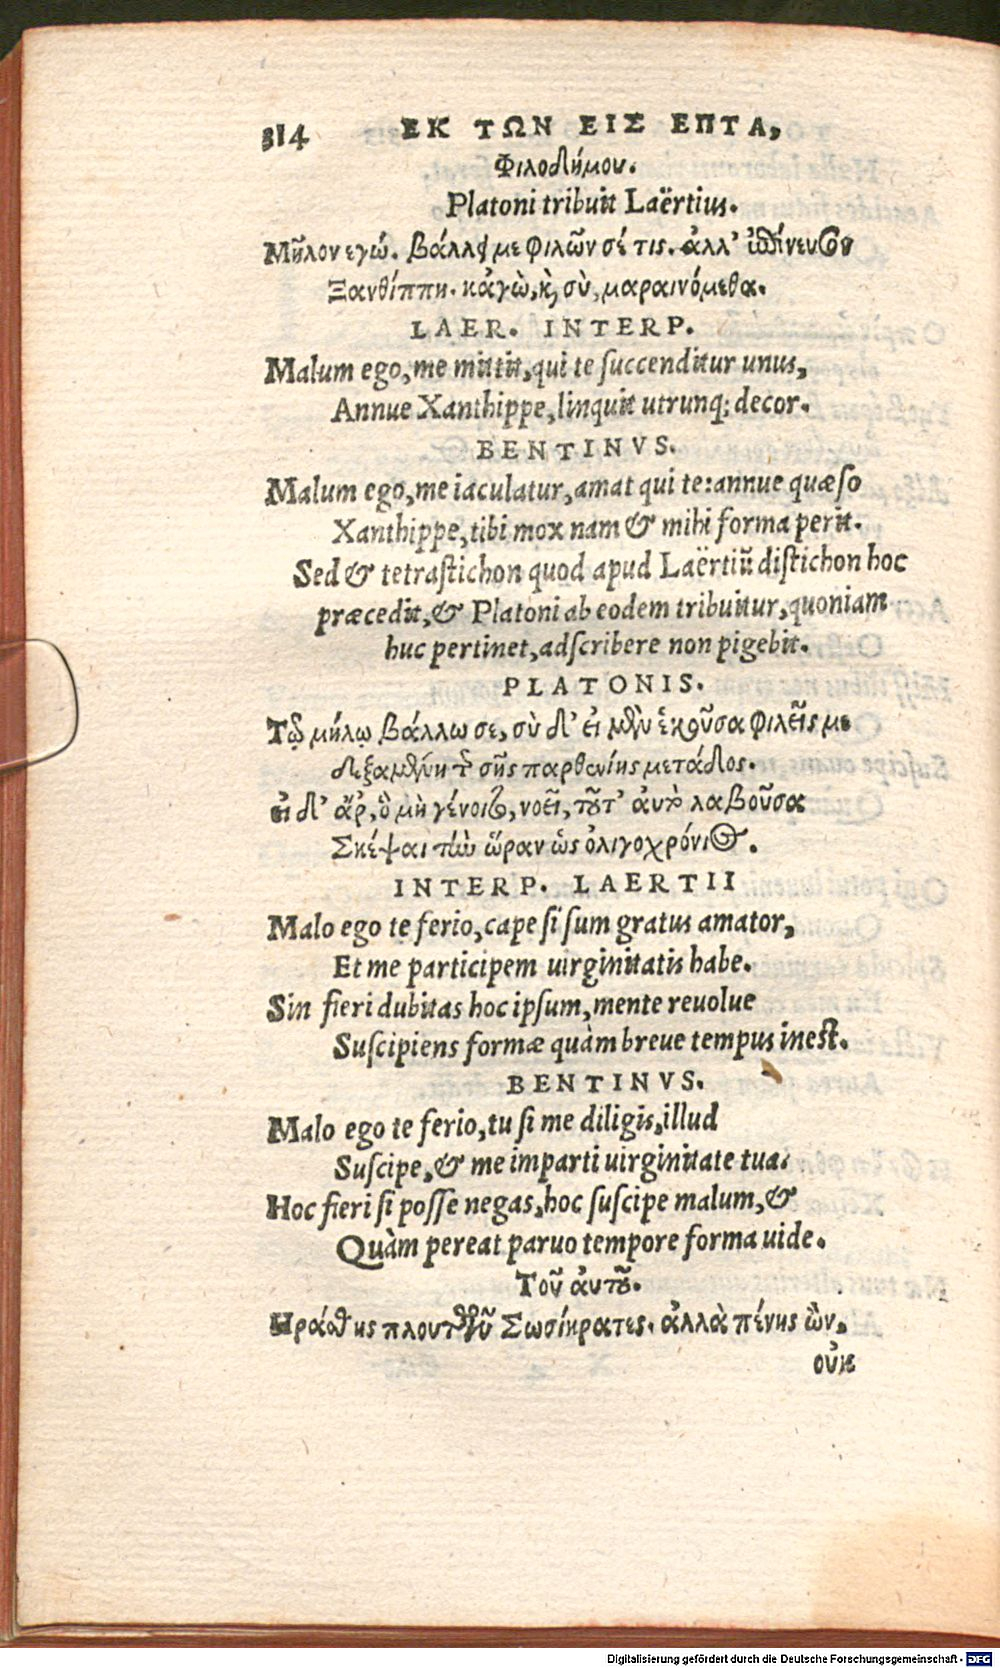 314 ΕΚ ΤΩΝ ΕΙΣ ΕΠΤΑ,
Φιλοδήμου.
Platoni tribuit Laërtius.
Μῆλον εγώ. βάλλει με φιλῶν σέ τις. ἀλλ' ἐπίνευσον
Ξανθίππη. κἀγὼ, κ̀ σὺ, μαραινόμεθα.
LAER. INTERP.
Malum ego, me mittit, qui te succenditur unus,
Annue Xanthippe, linquit utrunq; decor.
BENTINVS.
Malum ego, me iaculatur, amat qui te: annue quæso
Xanthippe, tibi mox nam & mihi forma perit.
Sed & tetrastichon quod apud Laërtiũ distichon hoc
præcedit, & Platoni ab eodem tribuitur, quoniam
huc pertinet, adscribere non pigebit.
PLATONIS.
Τῷ μήλῳ βάλλω σε, σὺ δ' εἰ μὲν ἑκοῦσα φιλεῖς με
δεξαμένη τ῀ σῆς παρθενίης μετάδος.
εἰ δ' ἄρ, ὃ μὴ γένοιτο, νοεῖ, τοῦτ' ἀυτὸ λαβοῦσα
Σκέψαι τὴν ὥραν ὡς ὀλιγοχρόνιος.
INTERP. LAERTII
Malo ego te ferio, cape si sum gratus amator,
Et me participem uirginitatis habe.
Sin fieri dubitas hoc ipsum, mente reuolue
Suscipiens formæ quàm breue tempus inest.
BENTINVS.
Malo ego te ferio, tu si me diligis, illud
Suscipe, & me imparti uirginitate tua:
Hoc fieri si posse negas, hoc suscipe malum, &
Quàm pereat paruo tempore forma uide.
Τοῦ ἀυτοῦ.
Ηράσθης πλουτῶν Σωσίκρατες. ἀλλὰ πένης ὢν,
οὐκ
Digitalisierung gefördert durch die Deutsche Forschungsgemeinschaft - DFG